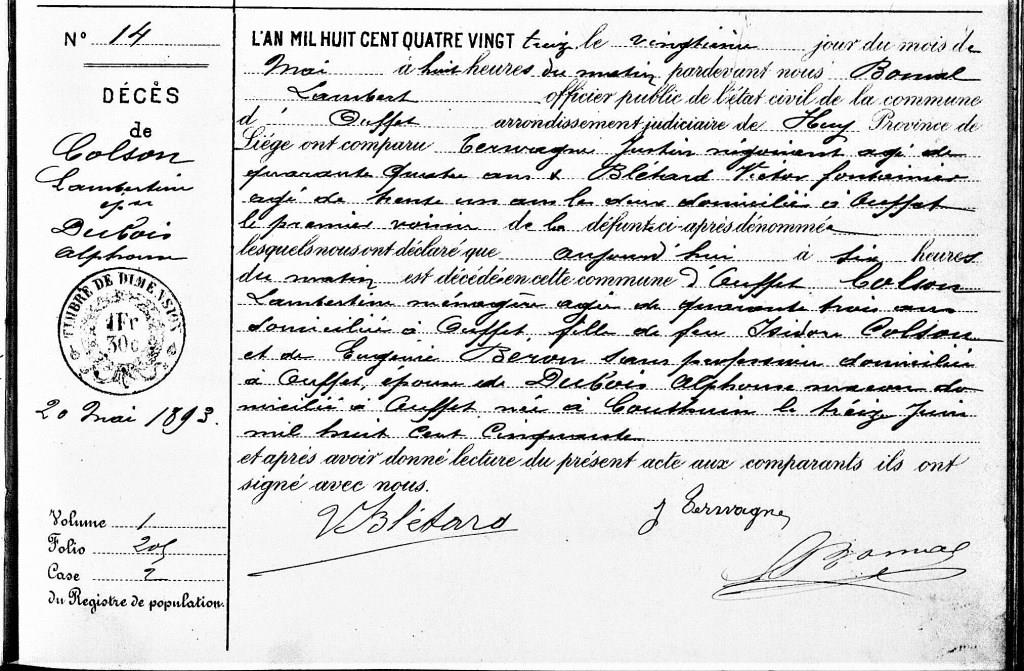 N° 14
DÉCÈS
de
Colson
Lambertine
épse
Dubois
Alphonse
TIMBRE DE DIMENSION
1Fr
30c
20 Mai 1893.
Volume 1
Folio 205
Case 2
du Registre de population.
L'AN MIL HUIT CENT QUATRE VINGT treize le vingtième jour du mois de
Mai à huit heures du matin pardevant nous Bomal
Lambert officier public de l'état civil de la commune
d' Ouffet arrondissement judiciaire de Huy Province de
Liège ont comparu Terwagne Justin négociant agé de
quarante quatre ans & Blétard Victor fontainier
agé de trente un ans les deux domiciliés à Ouffet
le premier voisin de la défunte ci-après dénommée
lesquels nous ont déclaré que aujourd'hui à six heures
du matin est décédée en cette commune d'Ouffet Colson
Lambertine ménagère agée de quarante trois ans
domiciliée à Ouffet, fille de feu Isidore Colson
et de Eugénie Beron sans profession domiciliée
à Ouffet, épouse de Dubois Alphonse maçon do
micilié à Ouffet née à Couthuin le treize Juin
mil huit cent cinquante
et après avoir donné lecture du présent acte aux comparants ils ont
signé avec nous.
V Blétard
J Terwagne
L Bomal